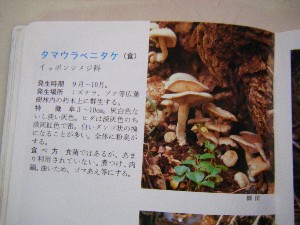 タマウラベニタケ (食)
イッポンシメジ科
発生時期 9月～10月。
発生場所 ミズナラ、ブナ等広葉
樹林内の朽木上に群生する。
特徴 傘3～10cm。灰白色な
いし淡い灰色。ヒダは淡灰色のち
淡紅色で密。白いダンゴ状の塊
になることが多い。全体に粉臭が
する。
食べ方 食菌ではあるが、あま
り利用されていない。煮つけ、肉
鍋、油いため、ゴマあえ等にする。